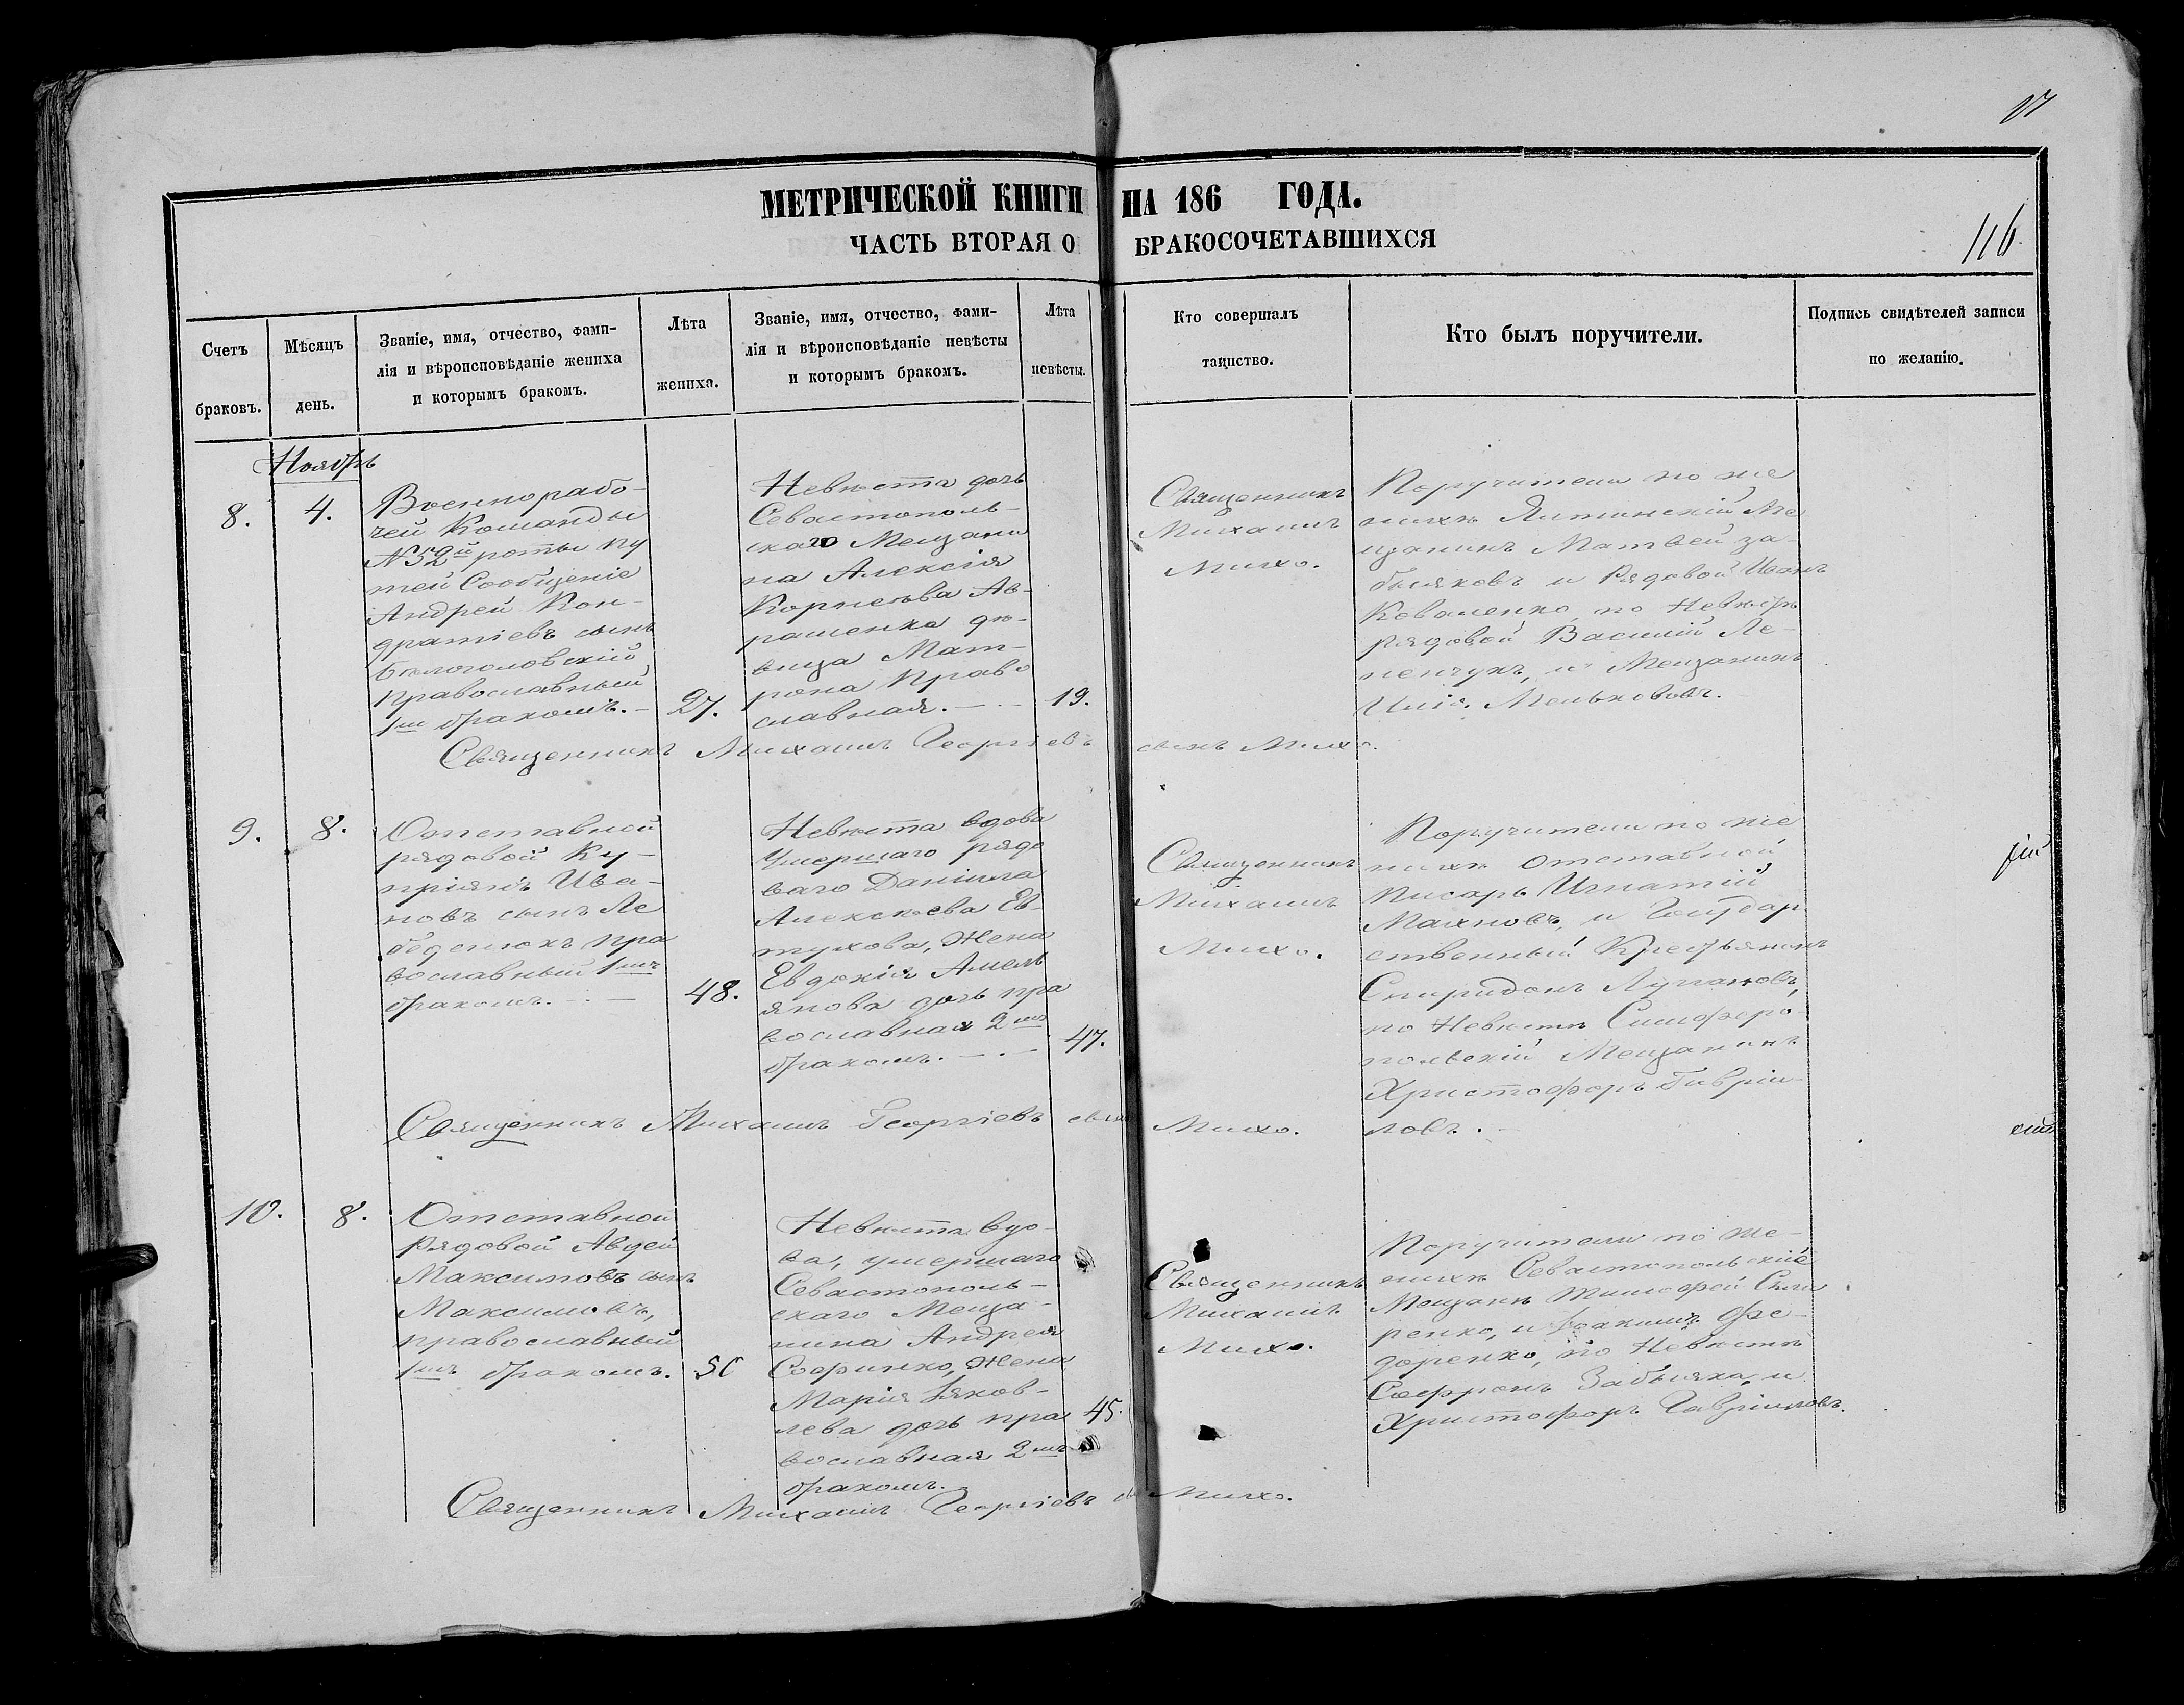 17
МЕТРИЧЕСКОЙ КНИГИ НА 186 ГОДА.
ЧАСТЬ ВТОРАЯ О БРАКОСОЧЕТАВШИХСЯ
116.
Счетъ
браковъ.
Мѣсяцъ
день.
Званіе, имя, отчество, фами-
лія и вѣроисповѣданіе жениха
и которымъ бракомъ.
Лѣта
жениха.
Званіе, имя, отчество, фами-
лія и вѣроисповѣданіе невѣсты
и которымъ бракомъ.
Лѣта
невѣсты.
Кто совершалъ
таинство.
Кто былъ поручители.
Подпись свидѣтелей записи
по желанію.
Ноябрь
8.
4.
Военнорабо-
чей Команды
№52й роты пу
тей Сообщеніе
Андрей Кон-
дратіевъ сынъ
Бѣлоголовскій
православный
1мъ бракомъ. -
27.
Невѣста дочь
Севастополь-
скаго Мещани
на Алексія
Корнеьва Ав-
раменка дѣ-
вица Мат-
рона Право
славная. - . -
19.
Священникъ
Михаилъ
Михо.
Поручители по же
нихѣ Ялтинскій Ме
щанинъ Матвей за-
бѣяковъ и Рядовой Иванъ
Коваленко, по Невѣстѣ
рядовой Василій Ле-
пенчукъ, и Мещанинъ
Илія Мельковъ.
Священникъ Михаилъ Георгіевъ сынъ Михо.
9.
8.
Отставной
рядовой Ку-
пріянъ Ива-
новъ сынъ Ле
беденокъ пра
вославный 1мъ
бракомъ. - . -
48.
Невѣста вдова
Умершаго рядо
ваго Даніила
Алексѣева Ев-
тухова, Жена
Евдокія Амель
янова дочь пра
вославная 2мъ
бракомъ. - . -
47.
Священникъ
Михаилъ
Михо.
Поручители по же
нихѣ Отставной
Писарь Игнатій
Махновъ, и Государ
ственный Крестьянинъ
Спиридонъ Лугановъ,
по Невѣстѣ Симферо-
польскій Мещанинъ
Христофоръ Гавріи-
ловъ. -
Священникъ Михаилъ Георгіевъ сынъ Михо.
10.
8.
Отставной
Рядовой Авдей
Максимовъ сынъ
Максимовъ,
православный
1мъ бракомъ.
50
Невѣста вдо-
ва, умершаго
Севастополь-
скаго Меща-
нина Андрея
Софинко, Жена
Марія Яков-
лева дочь пра
вославная 2мъ
бракомъ. -
45.
Священникъ
Михаилъ
Михо.
Поручители по же-
нихѣ Севастопольскій
Мещанъ Тимофей
ренко, и Іоакимъ Фе-
доренко, по Невѣстѣ
Софронъ Забѣяка, и
Христофоръ Гавріиловъ.
Священникъ Михаилъ Георгіевъ Михо.